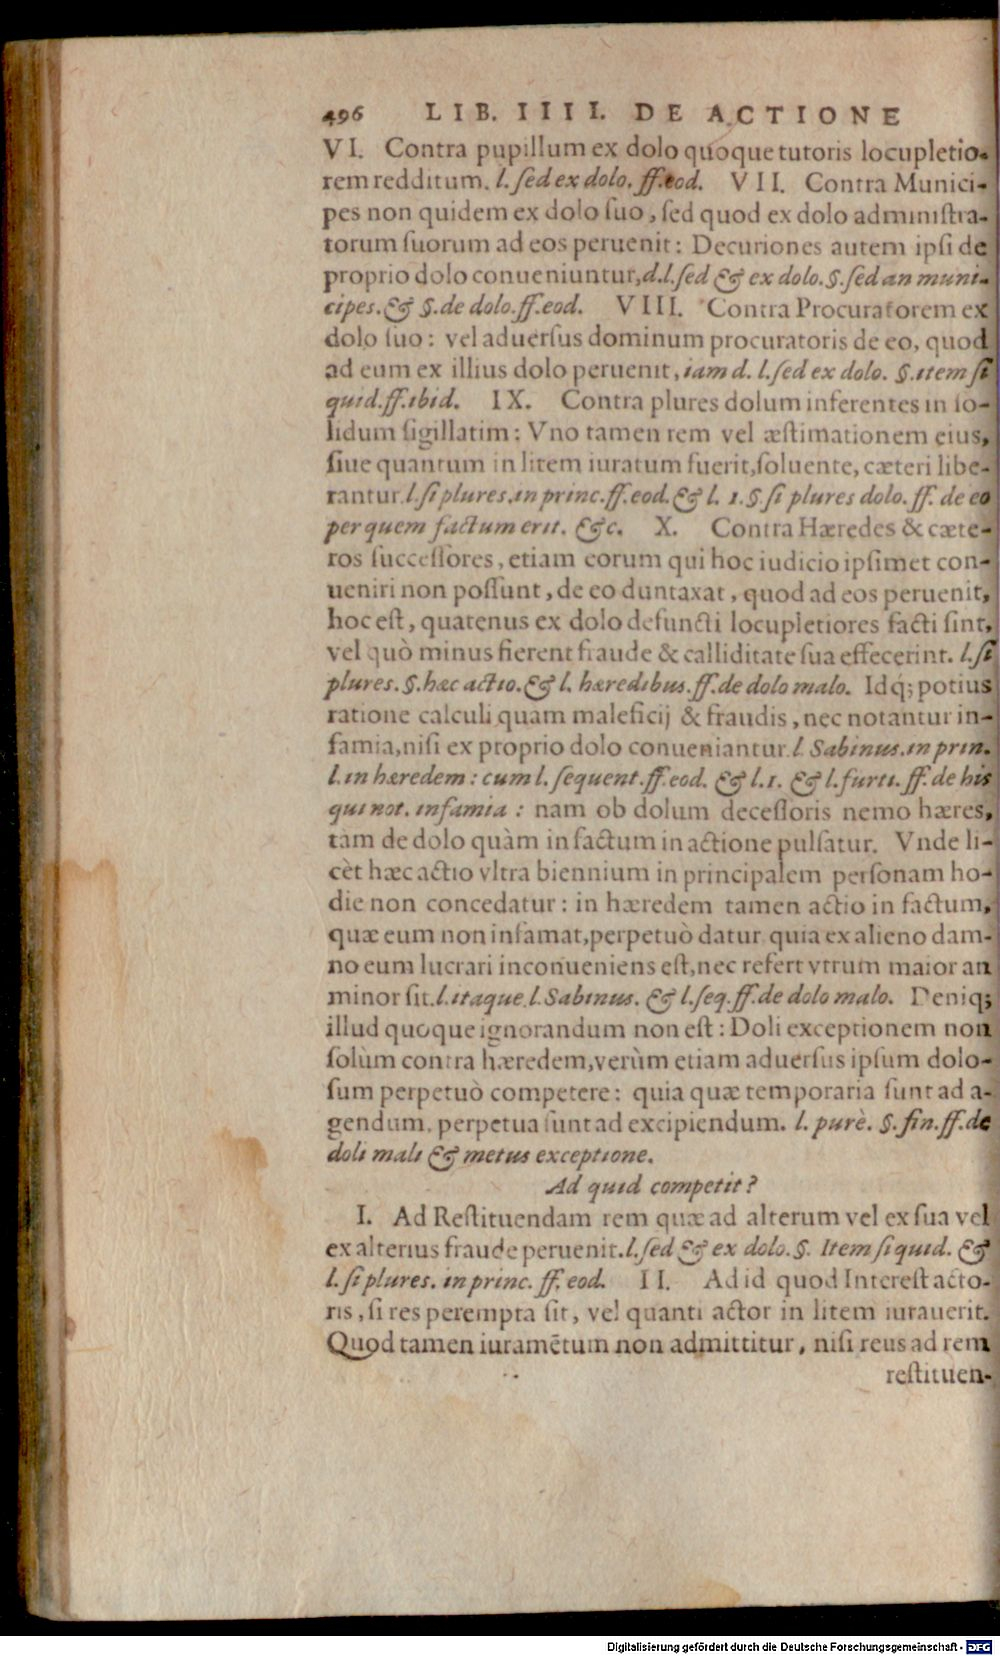 496 LIB. IIII. DE ACTIONE
VI. Contra pupillum ex dolo quoque tutoris locupletio-
rem redditum. l. ſed ex dolo. ff. eod. VII. Contra Munici-
pes non quidem ex dolo ſuo, ſed quod ex dolo adminiſtra-
torum ſuorum ad eos peruenit: Decuriones autem ipſi de
proprio dolo conueniuntur, d. l. ſed & ex dolo. §. ſed an muni-
cipes. & §. de dolo. ff. eod. VIII. Contra Procuratorem ex
dolo ſuo: vel aduerſus dominum procuratoris de eo, quod
ad eum ex illius dolo peruenit, iam d. l. ſed ex dolo. §. item ſi
quid. ff. ibid. IX. Contra plures dolum inferentes in ſo-
lidum ſigillatim: Vno tamen rem vel æſtimationem eius,
ſiue quantum in litem iuratum fuerit, ſoluente, cæteri libe-
rantur. l. ſi plures. in princ. ff. eod. & l. 1. §. ſi plures dolo. ff. de eo
per quem factum erit. &c. X. Contra Hæredes & cæte-
ros ſucceſſores, etiam eorum qui hoc iudicio ipſimet con-
ueniri non poſſunt, de eo duntaxat, quod ad eos peruenit,
hoc eſt, quatenus ex dolo defuncti locupletiores facti ſint,
vel quò minus fierent fraude & calliditate ſua effecerint. l. ſi
plures. §. hæc actio. & l. hæredibus. ff. de dolo malo. Idq́; potius
ratione calculi quam maleficij & fraudis, nec notantur in-
famia, niſi ex proprio dolo conueniantur l. Sabinus. in prin.
l. in hæredem: cum l. ſequent. ff. eod. & l. 1. & l. furti. ff. de his
qui not. infamia: nam ob dolum deceſſoris nemo hæres,
tàm de dolo quàm in factum in actione pulſatur. Vnde li-
cèt hæc actio vltra biennium in principalem perſonam ho-
die non concedatur: in hæredem tamen actio in factum,
quæ eum non infamat, perpetuò datur quia ex alieno dam-
no eum lucrari inconueniens eſt, nec refert vtrum maior an
minor ſit. l. itaque. l. Sabinus. & l. ſeq. ff. de dolo malo. Deniq;
illud quoque ignorandum non eſt: Doli exceptionem non
ſolùm contra hæredem, verùm etiam aduerſus ipſum dolo-
ſum perpetuò competere: quia quæ temporaria ſunt ad a-
gendum, perpetua ſunt ad excipiendum. l. purè. §. fin. ff. de
doli mali & metus exceptione.
Ad quid competit?
I. Ad Reſtituendam rem quæ ad alterum vel ex ſua vel
ex alterius fraude peruenit. l. ſed & ex dolo. §. Item ſi quid. &
l. ſi plures. in princ. ff. eod. II. Ad id quod Intereſt acto-
ris, ſi res perempta ſit, vel quanti actor in litem iurauerit.
Quod tamen iuramētum non admittitur, niſi reus ad rem
reſtituen-
Digitalisierung gefördert durch die Deutsche Forschungsgemeinschaft - DFG